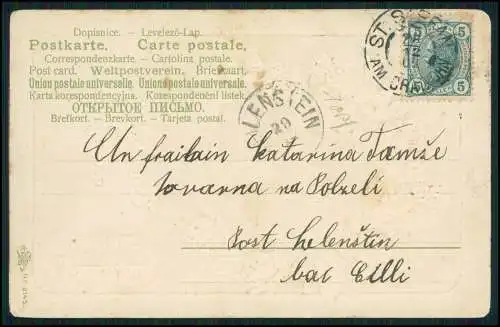 Dopisnice. — Levelező-Lap.
Postkarte. Carte postale.
Correspondenzkarte. — Cartolina postale.
Post card. Weltpostverein. Briefkaart.
Union postale universelle. Unione postale universale.
Karta korespondencyjna. Korespondenční lístek.
ОТКРЫТОЕ ПИСЬМО.
Brefkort. — Brevkort. — Tarjeta postal.
5 5
ST.
AM
LENSTEIN
29
An frailain Katarina Tamže
tovarna na Polzeli
Post helenštin
bai Cilli